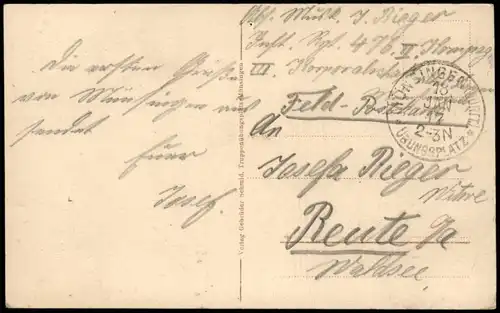 Die ersten Grüße
von Münsingen aus
sendet
Euer
Josef.
Verlag Gebrüder Schmid, Truppenübungsplatz Münsingen
Abs. Musk. J. Rieger
Inft. Rgt. 476 II Kompag
III Korporalschaft
MÜNSINGEN
16
JUN
17
2-3N
ÜBUNGSPLATZ
Feld-
An
Josefa Rieger
Witwe
Reute O/a
Waldsee